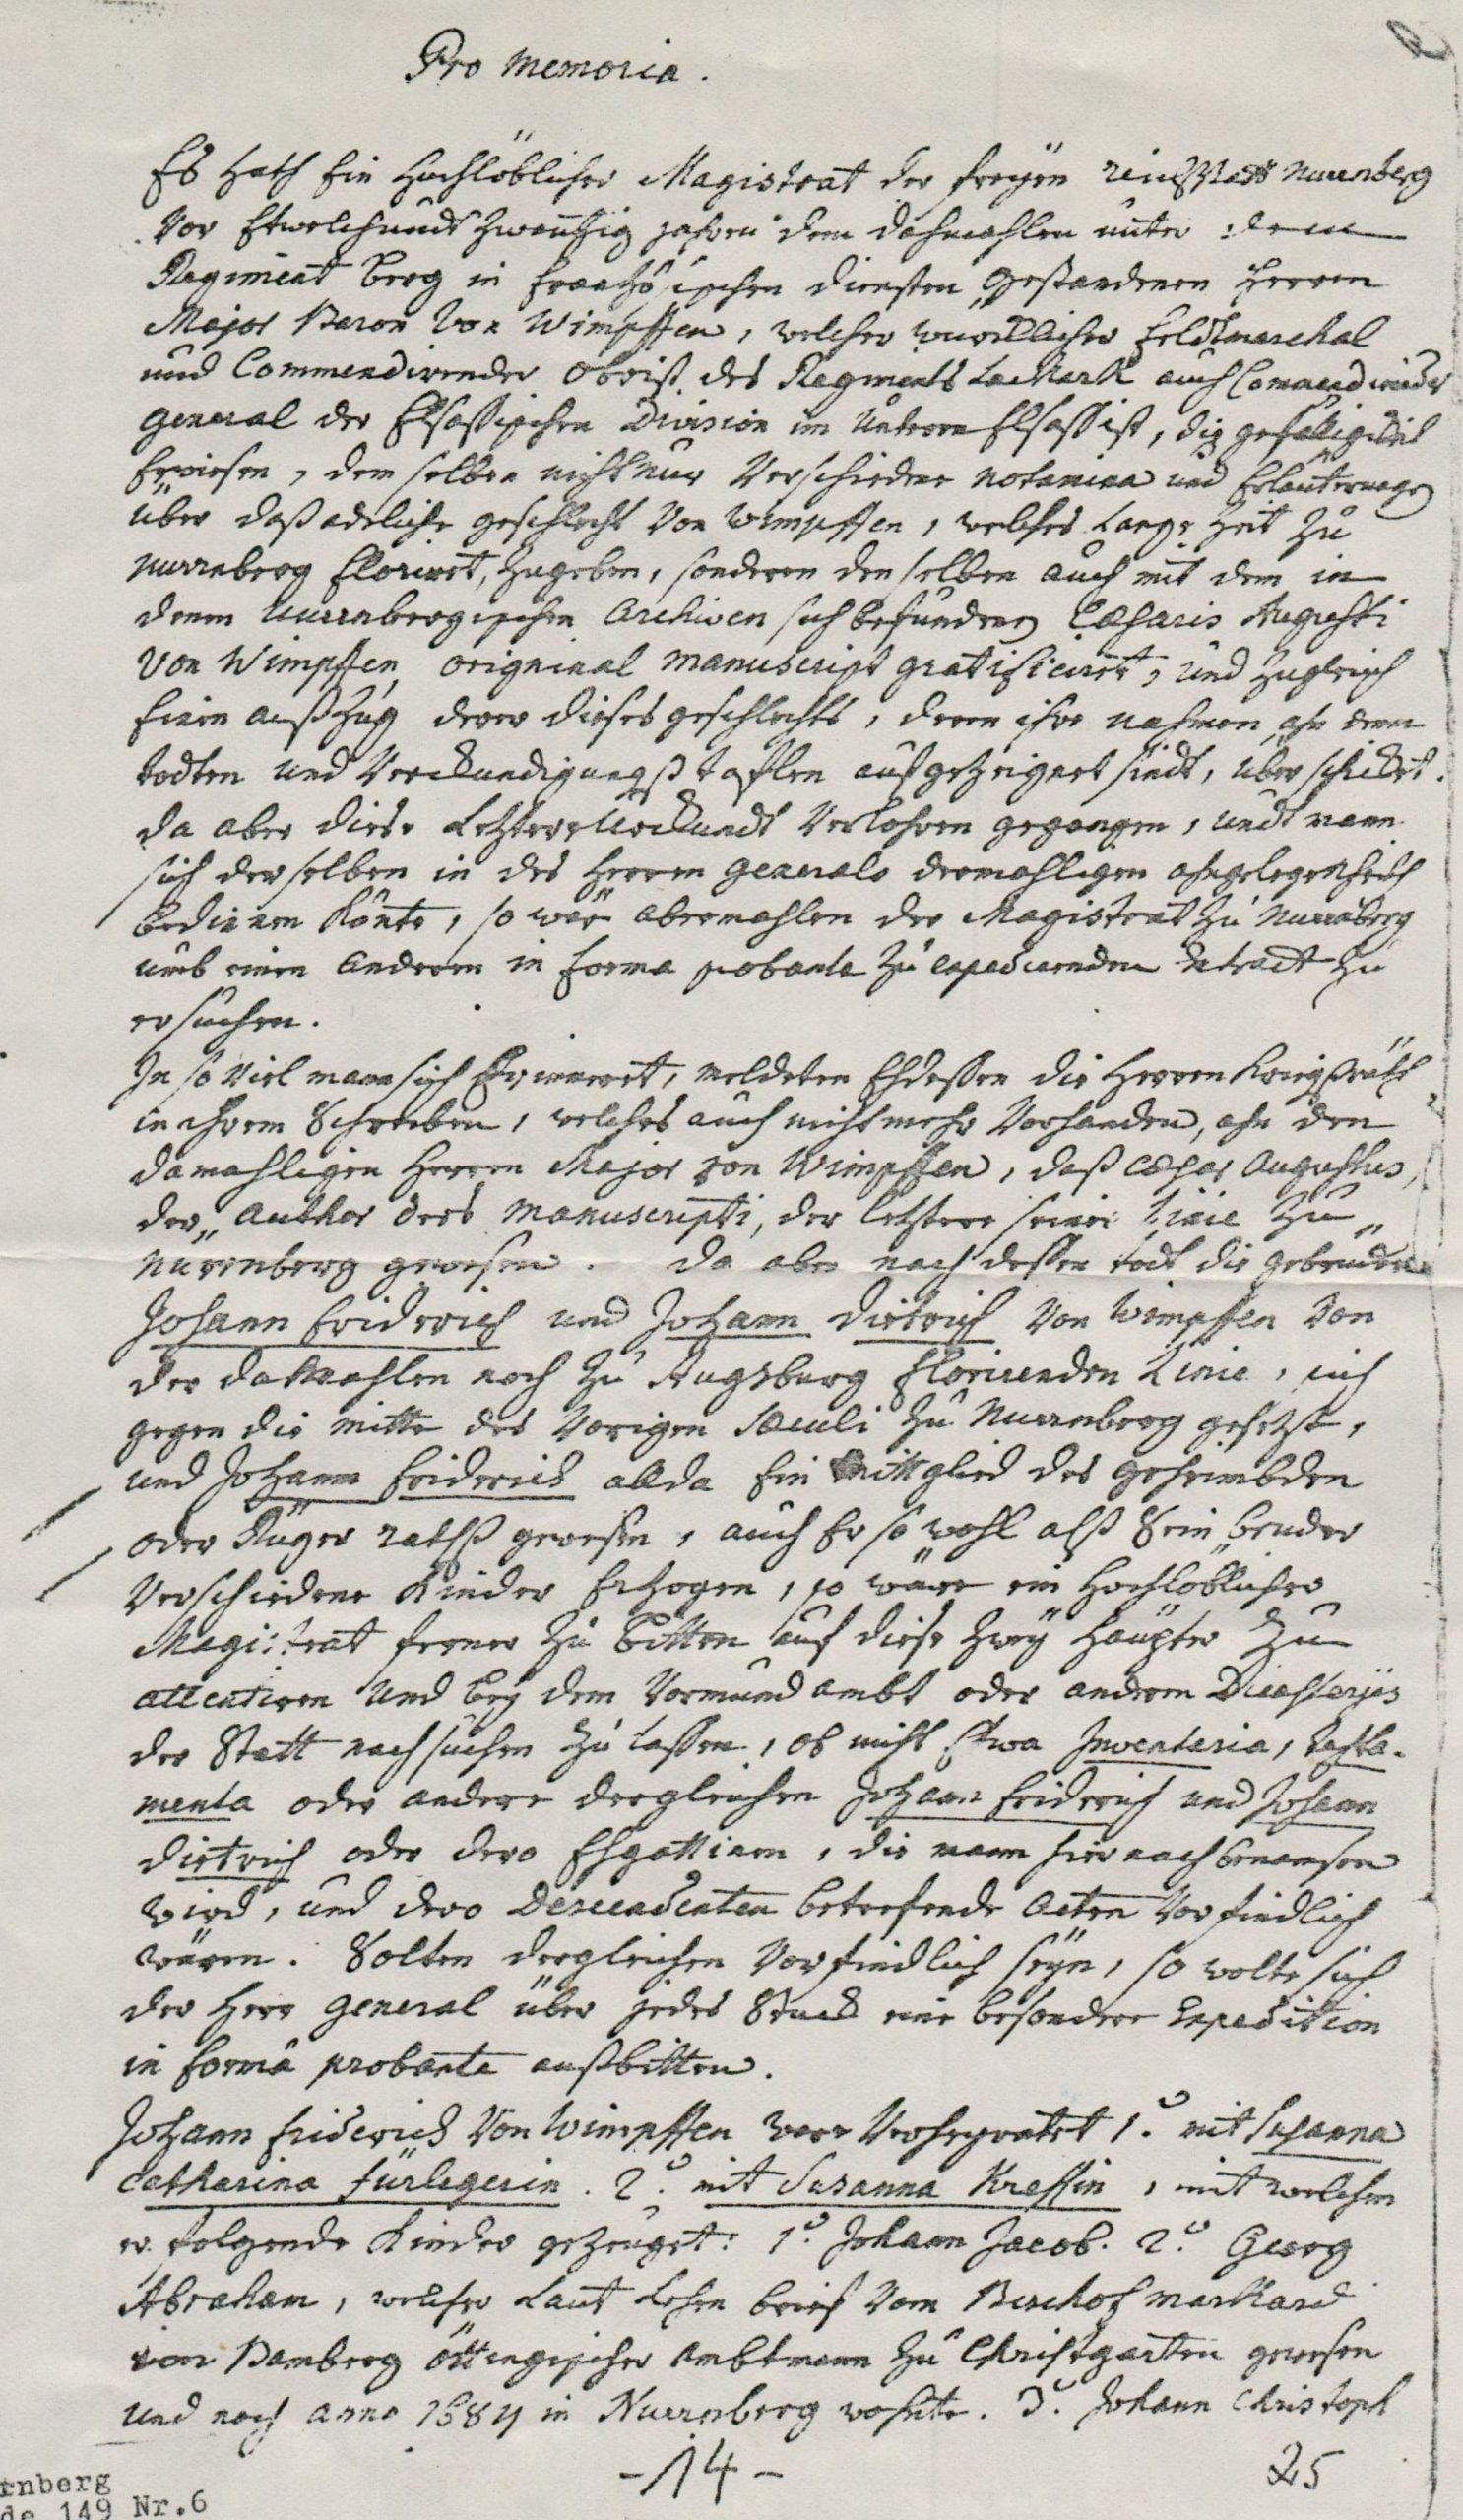 Pro Memoria.
Es hath Ein Hochlöblicher Magistrat der freyen reichsstadt Nurrnberg
Vor Etwelchundt Zwantzig jahren dem dahmahlen unter dem
Regiment Berg in frantzösischen diensten gestandenen Herren
Major Baron Von Wimpffen, welcher wurcklicher feldtmarchal
und Commendirender Obrist des Regiments LaMark auch Commendirender
General der Elsassischen Division im Unteren Elsass ist, die gefälligkeit
Erwiesen, dem selben nicht nur Verschiedene notamina und Erlauterungen
über dass adeliche geschlecht Von Wimpffen, welches lange Zeit zu
Nurrnberg floriret, zugeben, sonderen den selben auch mit dem in
denen Nurrnbergischen Archiven sich befundenen Cæsaris Augusti
Von Wimpffen original manuscript gratificiret, und zugleich
Einen ausszug derer dieses geschlechts, deren ihre nahmen ahn denen
todten und Verckundigungss tafflen aufgezeignet sindt, überschicket.
da aber diese Letztere Urckundt Verlohren gegangen, undt mann
sich derselben in des Herren Generals dermahligen ahngelegenheit
bedienen könte, so wär abermahlen der Magistrat zu Nurrnberg
umb einen anderen in forma probante zu expedirenden extract zu
ersuchen.
In so Viel mann sich Erinneret, meldeten Ehdessen die Herren Kriegssräth
in ihrem Schreiben, welches auch nicht mehr Vorhanden, ahn den
damahligen Herren Major von Wimpffen, dass Cæsar Augustus,
der Author des manuscripti, der letztere seiner Linie zu
Nurrnberg gewesen. da aber nach dessen todt die gebrüder
Johann Friderich und Johann Dietrich Von Wimpffen Von
der damahlen noch zu Augsburg florirenden Linie, sich
gegen die mitte des Vorigen Sæculi zu Nurrnberg gesetzt,
und Johann Friderich allda Ein Mittglied des geheimbden
oder Rüger rathss gewesen, auch Er so wohl alss Sein bruder
Verschiedene Kinder Erzogen, so wäre ein Hochlöblicher
Magistrat ferner zu bitten auf diese zwey häupter zu
attentiren und bey dem Vormund ambt oder anderen Dicasteriis
der Statt nachsuchen zu lassen, ob nicht Etwa Inventaria, testa-
menta oder andere dergleichen Johann Friderich und Johann
Dietrich oder dero Ehgattinen, die mann hiernach benamsen
wird, und dero Descendenten betrefende Acten Vorfindlich
wären. Solten dergleichen Vorfindlich seyn, so wolte sich
der Herr General über jedes Stuck eine besondere Expedition
in formâ probante aussbitten.
Johann Friderich Von Wimpffen ware Verheyratet 1º. mit Susanna
Catharina Fürlegerin. 2º. mit Susanna Kressin, mit welchen
er folgende Kinder gezeuget: 1º. Johann Jacob. 2º. Georg
Abraham, welcher Laut Lehen brief Vom Bischof Markard
von Bamberg öttingischer Ambtmann zu Christgarten gewesen
und noch anno 1684 in Nurrnberg wohnte. 3º. Johann Christoph
-14-
25
rnberg
de 149 Nr.6